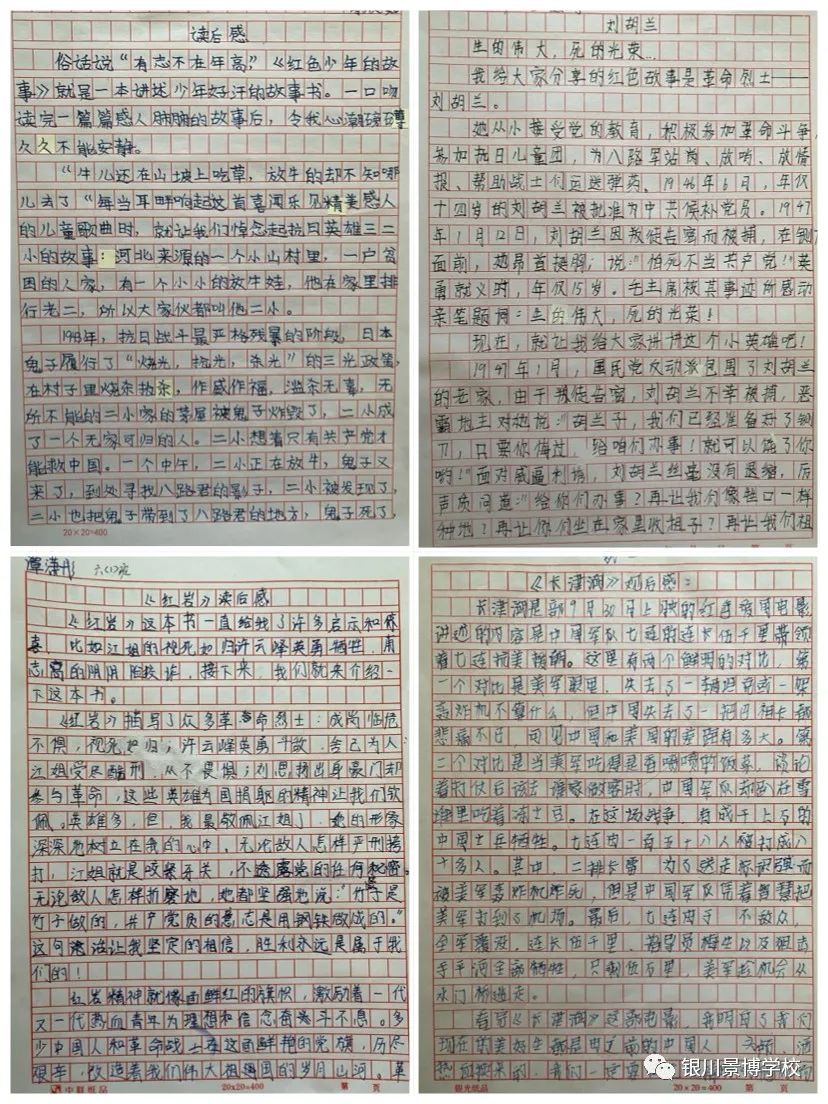 读后感
俗话说“有志不在年高”,《红色少年的故
事》就是一本讲述少年好汉的故事书。一口吻
读完一篇篇感人肺腑的故事后,令我心潮磅礴
久久不能安静。
“牛儿还在山坡上吃草,放牛的却不知哪
儿去了“每当耳畔响起这首喜闻乐见精美感人
的儿童歌曲时,就让我们悼念起抗日英雄王二
小的故事:河北来源的一个小山村里,一户贫
困的人家,有一个小小的放牛娃,他在家里排
行老二,所以大家伙都叫他二小。
抗日战斗最严格残暴的阶段,日本
鬼子履行了“烧光,抢光,杀光”的三光政策,
在村子里烧杀抢杀,作威作福,滥杀无辜,无
所不能的二小家的茅屋被鬼子炸毁了,二小成
了一个无家可归的人。二小想着只有共产党才
能救中国。一个中午,二小正在放牛,鬼子又
来了,到处寻找八路君的影子,二小被发现了,
二小也把鬼子带到了八路君的地方,鬼子死了,
20×20=400
刘胡兰
生的伟大,死的光荣…
我给大家分享的红色故事是革命烈士——
刘胡兰。
她从小接受党的教育,积极参加革命斗争,
参加抗日儿童团,为八路军站岗、放哨、放情
报、帮助战士们运送弹药。1946年6月,年仅
十四岁的刘胡兰被批准为中共候补党员。1947
年1月12日,刘胡兰因叛徒告密而被捕,在铡刀
面前,她昂首挺胸,说:“怕死不当共产党!”英
勇就义时,年仅15岁。毛主席被其事迹所感动
亲笔题词:生的伟大,死的光荣!
现在,就让我给大家讲讲这个小英雄吧!
1947年1月,国民党反动派包围了刘胡兰
的老家,由于叛徒告密,刘胡兰不幸被捕,恶
霸地主对她说:“胡兰子,我们已经准备好了铡
刀,只要你悔过,给咱们办事!就可以饶了你
哟!”面对威逼利诱,刘胡兰丝毫没有退缩,厉
声质问道:“给你们办事?再让我们像牲口一样
种地?再让你们坐在家里收租子?再让我们祖
六(1)班
《红岩》读后感
《红岩》这本书一直给我了许多启示和
比如江姐的视死如归许云峰英勇牺牲,
志高的阴阴险狡诈,接下来,我们就来介绍一
下这本书。
《红岩》描写了众多革命烈士:成岗临危
不惧,视死如归;许云峰英勇斗敌,舍己为人
江姐受尽酷刑,从不畏惧;刘思扬出身豪门却
参与革命,这些英雄为国捐躯的精神让我们钦
佩。英雄多,但,我最敬佩江姐了,她的形象
深深地树立在我的心中。无论敌人怎样严刑拷
打,江姐就是咬紧牙关,不透露党的任何秘密。
无论敌人怎样折磨她,她都坚强地说:“竹子是
竹子做的,共产党员的意志是用钢铁做成的。”
这句话让我坚定的相信,胜利永远是属于我
们的!
红岩精神就像面鲜红的旗帜,激励着一代
又一代热血青年为理想和信念奋斗不息。多
少中国人和革命战士在这面鲜艳的党旗,历尽
艰辛,改造着我们伟大祖国的岁月山河。革
中联纸品
20×20=400
第 页
《长津湖》观后感:
长津湖是部9月30日上映的红色爱国电影
讲述的内容是中国军队七连的连长伍千里带领
着七连抗美援朝。这里有两个鲜明的对比,第
一个对比是美军眼里,失去了一辆坦克或一架
轰炸机不算什么,但中国失去了一把巴祖卡都
悲痛不已,可见中国和美国的差距有多大。第
二个对比是当美军吃得是香喷喷的饭菜,谈论
着打仗后该去谁家做客时,中国军队却趴在雪
堆里吃着冻土豆。在这场战争,有成千上万的
中国士兵牺牲。七连由一百五十八人被打成八
十多人。其中,二排长雷 为了送走标识弹而
被美军轰炸机炸死,但是中国军队凭着智慧把
美军打到了机场。最后,七连由于 不敌众,
全军覆没,连长伍千里、指导员梅生以及狙击
手平河全部牺牲,只剩伍万里,美军趁机会从
水门桥逃走。
看了《长津湖》这部电影,我明白了我们
现在的美好生活都是由之前的中国人
热血换来的,我们一定要
观光纸品
20×20=400
银川景博学校